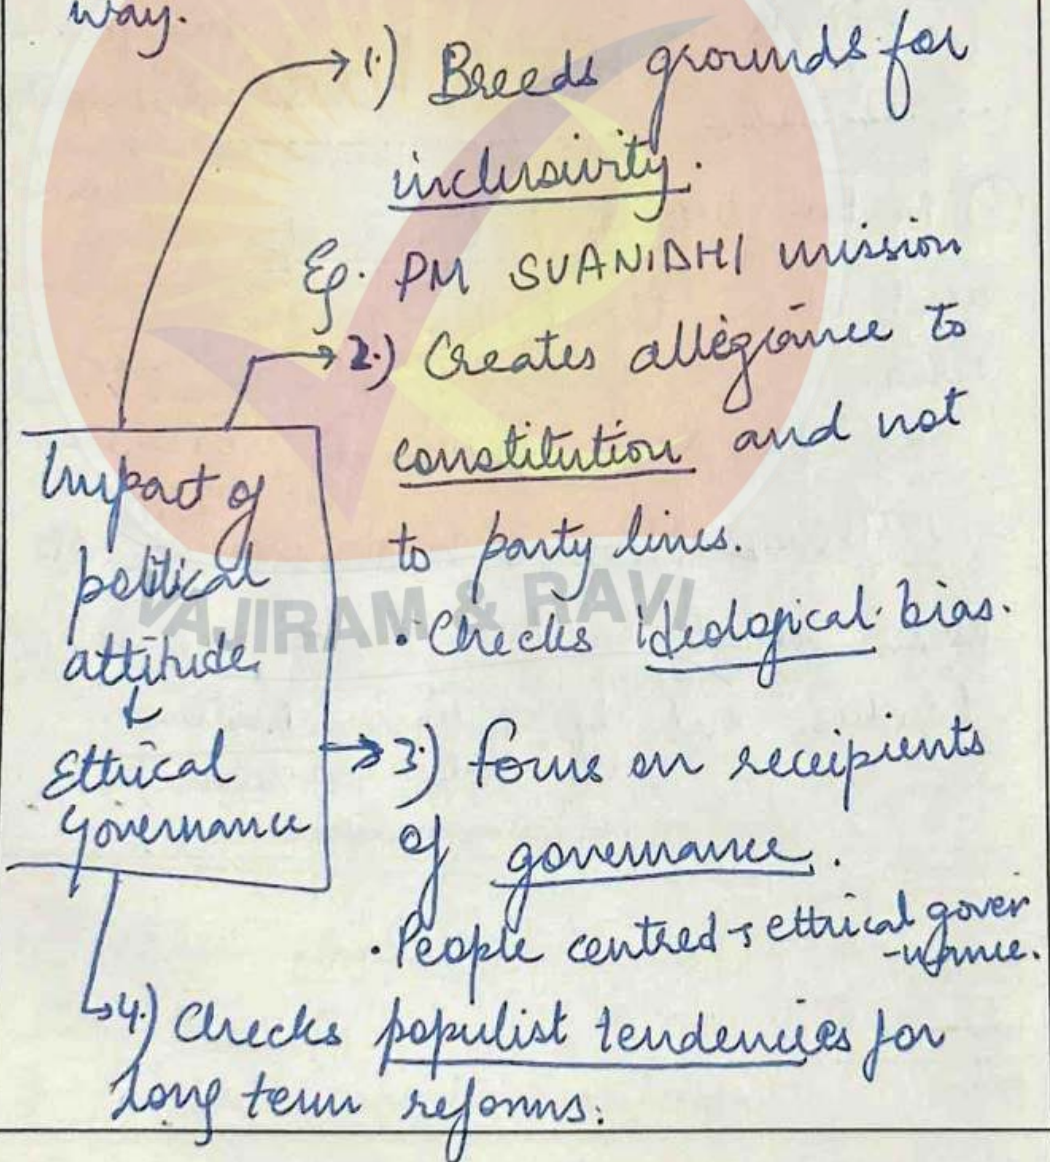 way.
1.) Breeds grounds for
inclusivity.
Eg. PM SVANIDHI mission
2.) Creates allegiance to
constitution and not
to party lines.
• Checks ideological bias.
Impact of
political
attitude
↓
Ethical
Governance
3.) Focus on receipients
of governance.
• People centred → ethical gover
-nance.
4.) Checks populist tendencies for
long term reforms.
VAJIRAM & RAVI